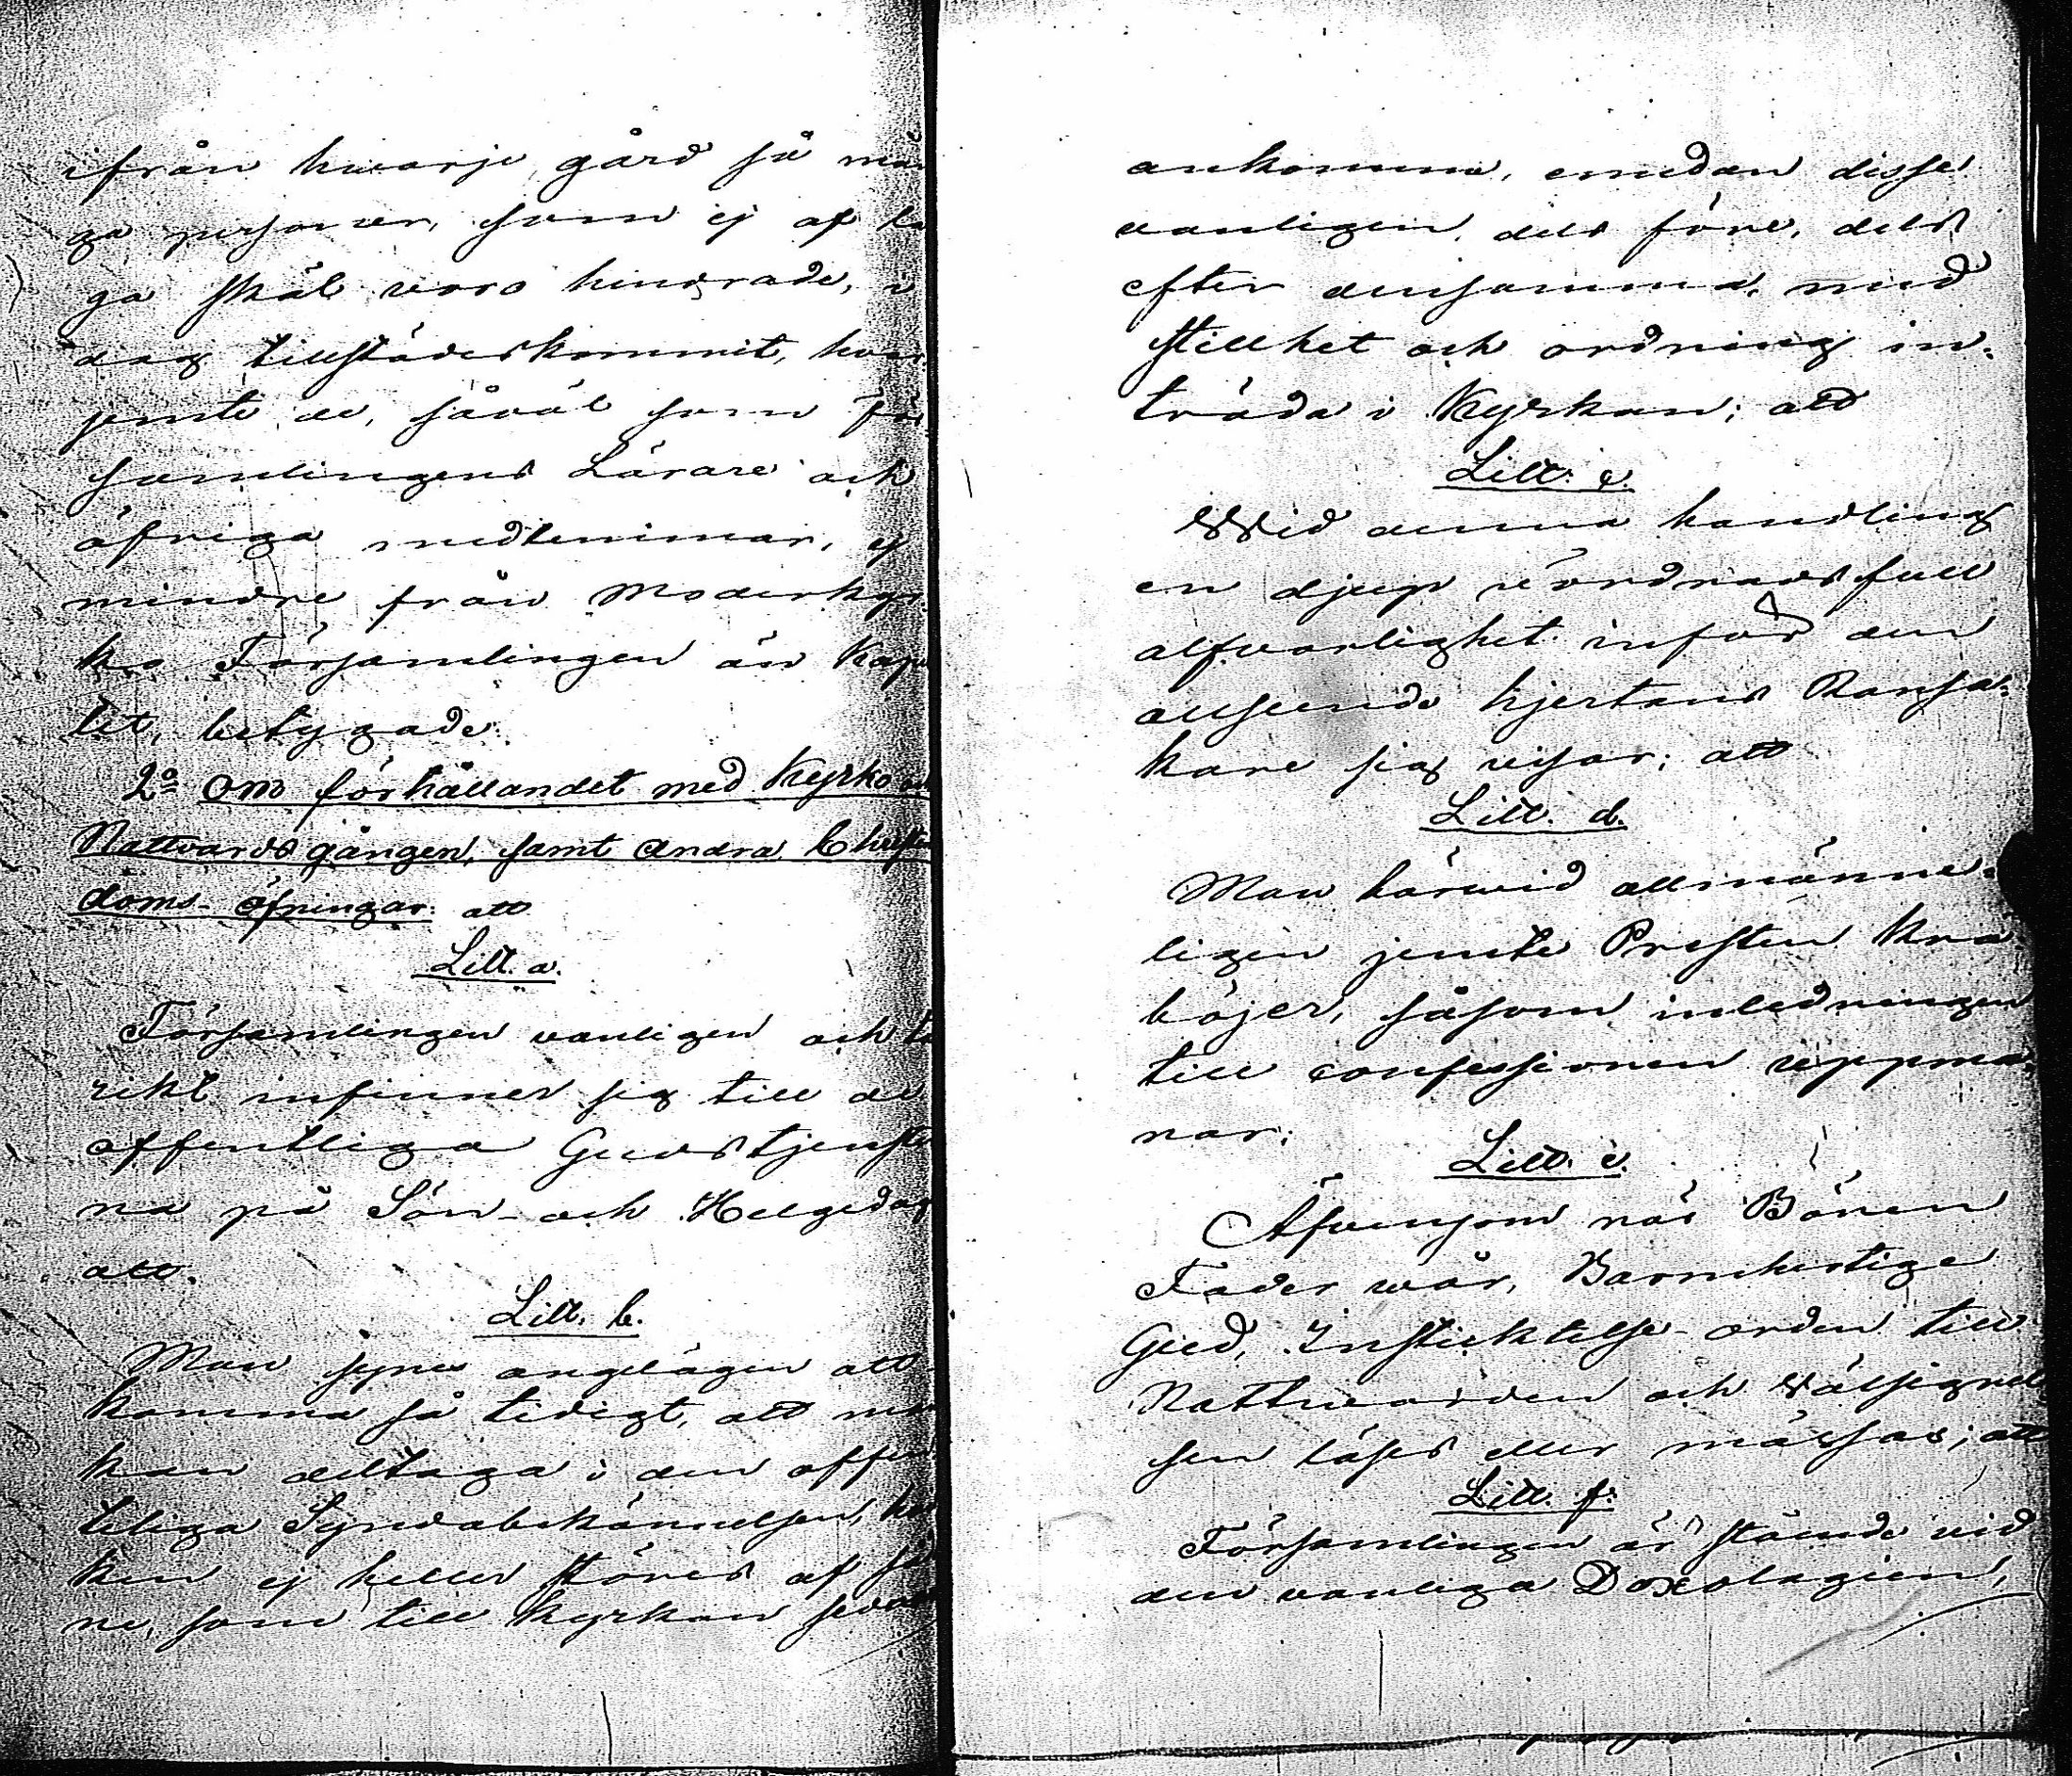 ifrån hwarje gård så må
ga personer, som ej af la
ga skäl voro hindrade, i
dag tillstädeskommit, hvar
jemte de, såväl som för
samlingens Lärare och
öfriga medlemmar, ej
mindre från Moderkyr
ko Församlingen än Kape
let, betygade:
2º Om förhållandet med Kyrko och
Nattvardsgången, samt andra Christen
doms-öfningar: att
Litt. a.
Församlingen vanligen och ta
rikt infinner sig till de
offentliga Gudstjenste
na på Sön- och Helgedag
att.
Litt. b.
Man synes angelägen att
komma så tidigt, att man
kan deltaga i den offen
tliga Syndabekännelsen, hvil
ken ej heller störes af så
ne, som till Kyrkan sedan
ankomma, emedan disse
vanligen, dels före, dels
efter densamma, med
stillhet och ordning in-
träda i Kyrkan; att
Litt. c.
Wid denna handling
en djup vördnadsfull
alfvarlighet inför den
allseende hjertans Ransa-
kare sig visar; att
Litt. d.
Man härwid allmänne-
ligen jemte Presten knä-
böjer, såsom inledningen
till confessionen uppma-
nar;
Litt. e.
Äfvensom när Bönen
Fader wår, Barmhertige
Gud, Instiktelse-orden till
Nattwarden och Wälsignel
sen läses eller mässas; att
Litt. f.
Församlingen är stående vid
den vanliga Doxologien,